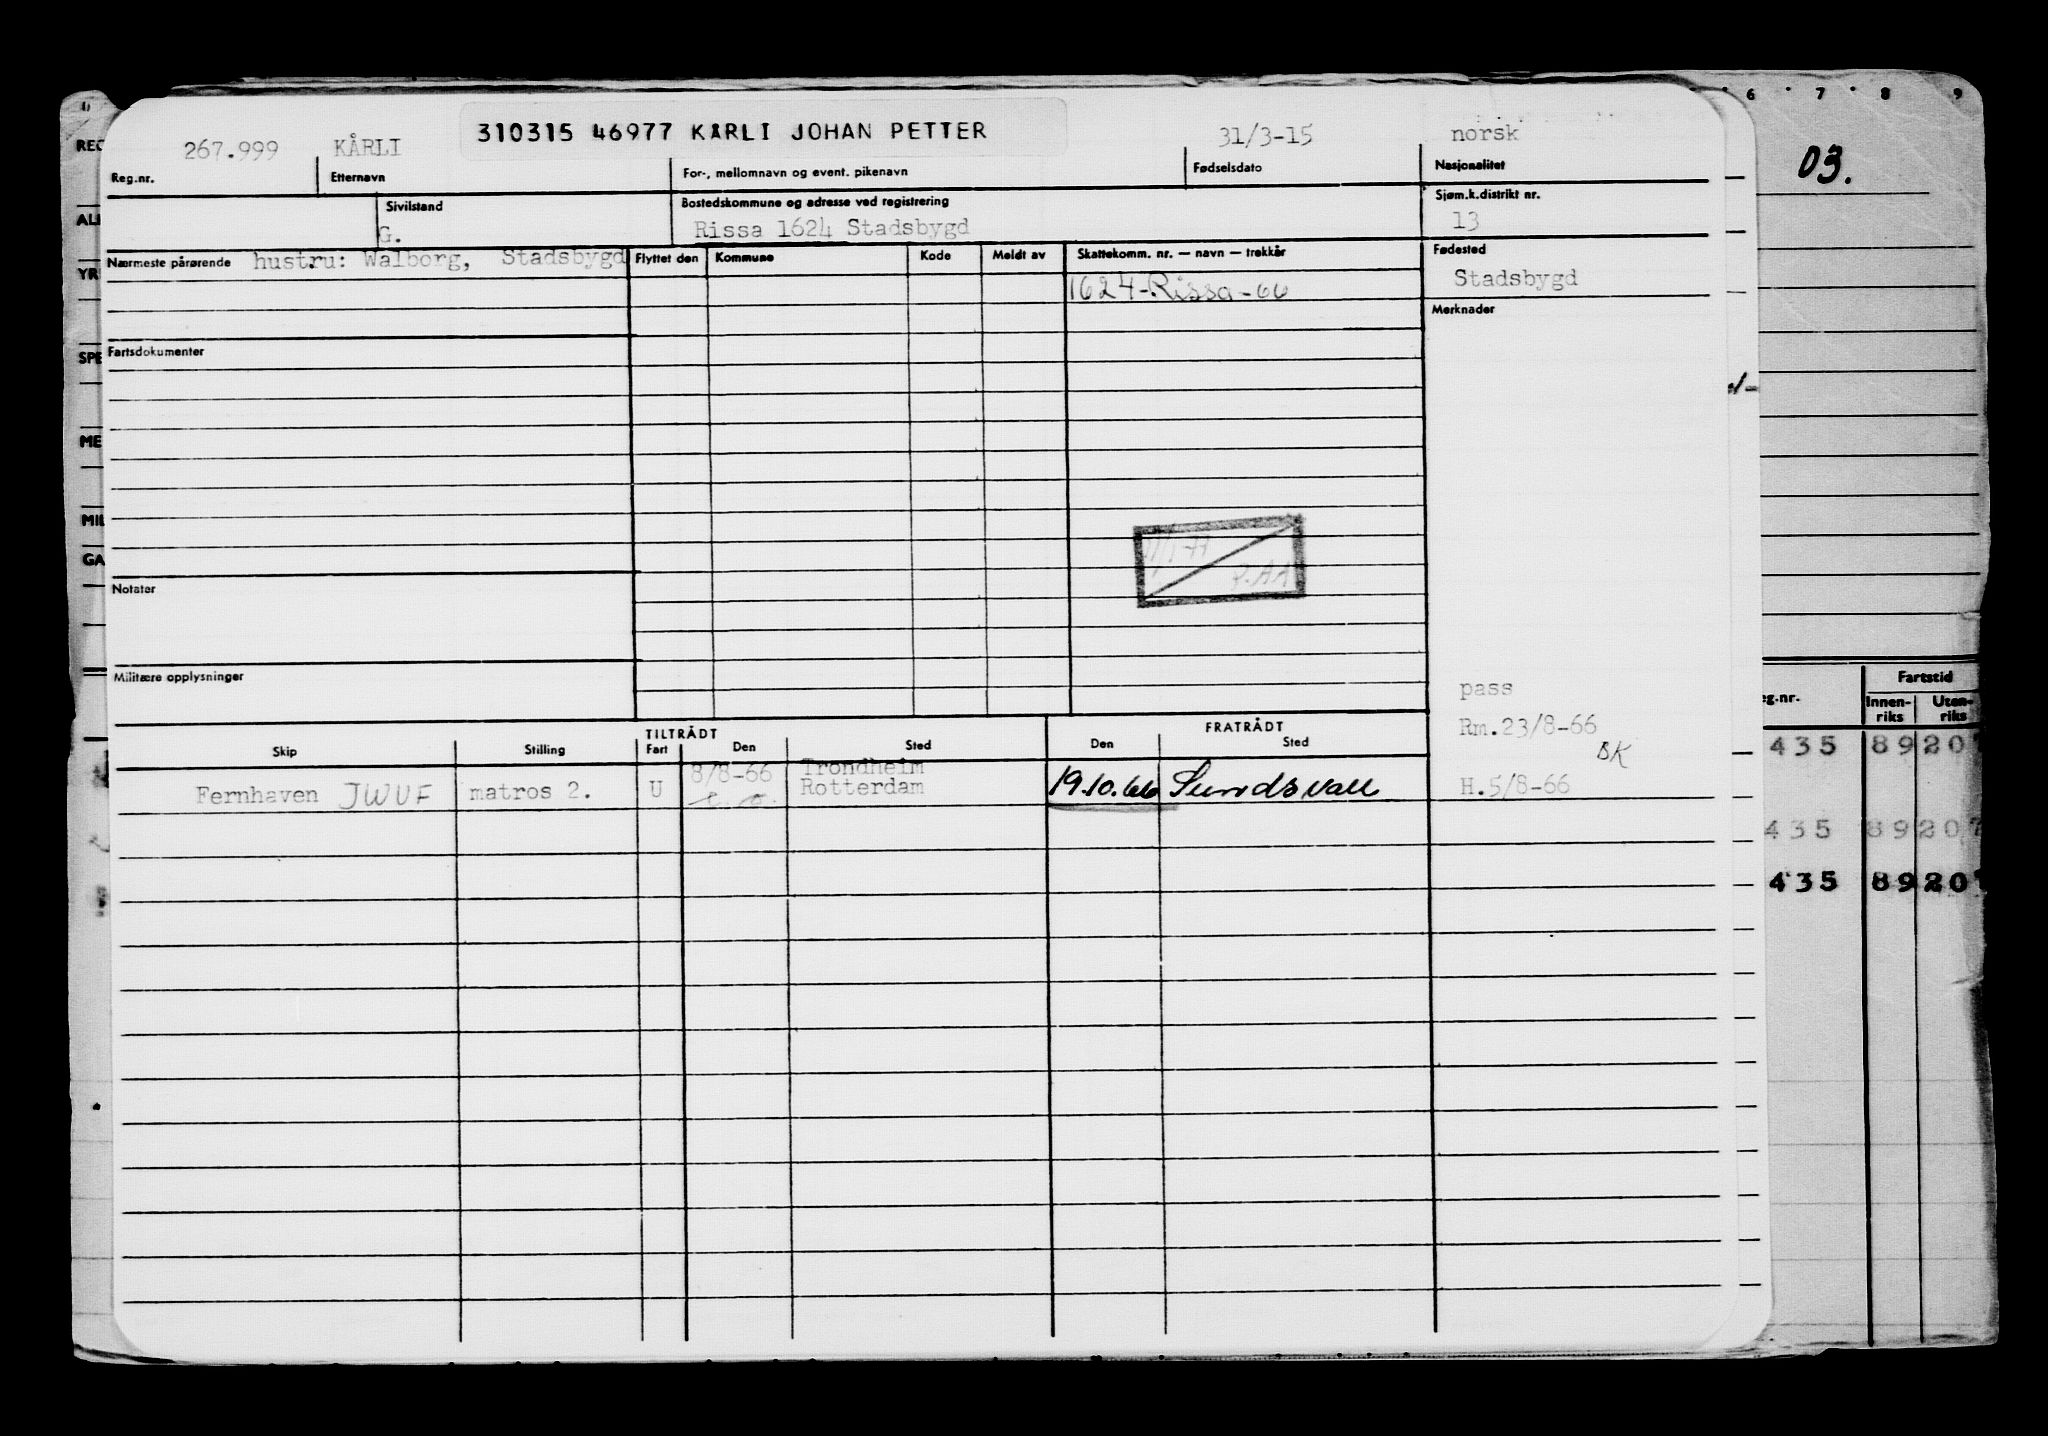 6 7 8 9
310315 46977 KÅRLI JOHAN PETTER
267.999 KÅRLI 31/3-15 norsk
Reg.nr. Etternavn For-, mellomnavn og event. pikenavn Fødselsdato Nasjonalitet
03.
Sivilstand Bostedskommune og adresse ved registrering Sjøm.k.distrikt nr.
G. Rissa 1624 Stadsbygd 13
Nærmeste pårørende hustru: Walborg, Stadsbygd Flyttet den Kommune Kode Meldt av Skattekomm. nr. — navn — trekkår Fødested
1624-Rissa-66 Stadsbygd
Merknader
Fartsdokumenter
Notater
Militære opplysninger
pass
Fartstid
Rm.23/8-66
BK
Innen-riks Uten-riks
TILTRÅDT FRATRÅDT
Skip Stilling Fart Den Sted Den Sted
435 89 207
8/8-66 Trondheim
Fernhaven JWUF matros 2. U Rotterdam 19.10.66 Sundsvall H.5/8-66
435 89 207
435 89 207